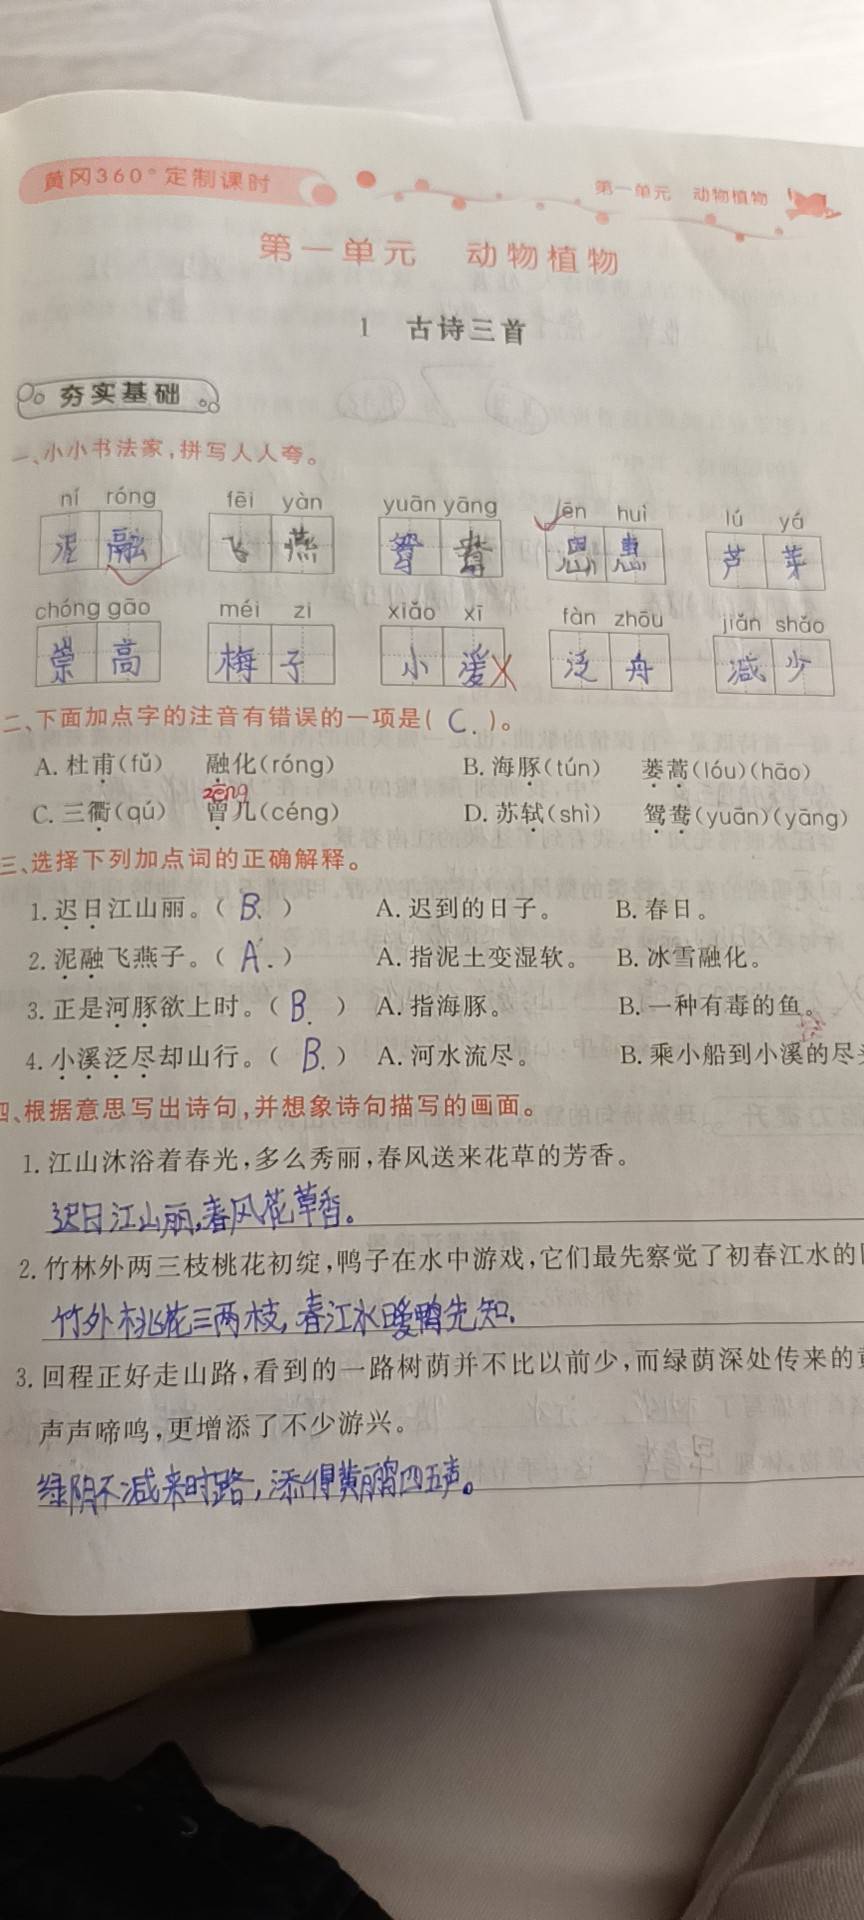 黄冈360°定制课时
第一单元 动物植物
第一单元 动物植物
1 古诗三首
夯实基础
一、小小书法家,拼写人人夸。
ní róng fēi yàn yuān yāng ēn huì lú yá
泥融 飞燕 鸳鸯 恩惠 芦芽
chóng gāo méi zi xiǎo xī fàn zhōu jiǎn shǎo
崇高 梅子 小 泛舟 减少
二、下面加点字的注音有错误的一项是( C. )。
A. 杜甫(fǔ) 融化(róng) B. 海豚(tún) 蒌蒿(lóu)(hāo)
zēng
C. 三衢(qú) 曾几(céng) D. 苏轼(shì) 鸳鸯(yuān)(yāng)
三、选择下列加点词的正确解释。
1. 迟日江山丽。( B. ) A. 迟到的日子。 B. 春日。
2. 泥融飞燕子。( A. ) A. 指泥土变湿软。 B. 冰雪融化。
3. 正是河豚欲上时。( B. ) A. 指海豚。 B. 一种有毒的鱼。
4. 小溪泛尽却山行。( B. ) A. 河水流尽。 B. 乘小船到小溪的尽
四、根据意思写出诗句,并想象诗句描写的画面。
1. 江山沐浴着春光,多么秀丽,春风送来花草的芳香。
迟日江山丽,春风花草香。
2. 竹林外两三枝桃花初绽,鸭子在水中游戏,它们最先察觉了初春江水的
竹外桃花三两枝,春江水暖鸭先知.
3. 回程正好走山路,看到的一路树荫并不比以前少,而绿荫深处传来的
声声啼鸣,更增添了不少游兴。
绿阴不减来时路,添得黄鹂四五声。